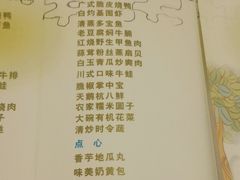 式脆皮烧鸭
白灼基围虾
清蒸多宝鱼
老豆腐焖牛腩
红烧野生甲鱼
蒜茸粉丝蒸扇贝
白玉青瓜炒爽肉
川式口味牛蛙
脆椒掌中宝
天鹅杭八鲜
农家糯米圆子
大碗有机花菜
清炒时令蔬
点心
香芋地瓜丸
味美奶黄包
鸭
鱼
肉
牛排
烧肉